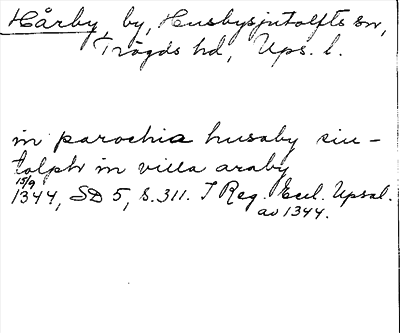 Hårby, by, Husbysjutolfts sn,
Trögds hd, Ups. l.
in parochia husaby siu-
tolph in villa araby
15/9
1344, SD 5, s. 311. I Reg. Eccl. Upsal.
av 1344.